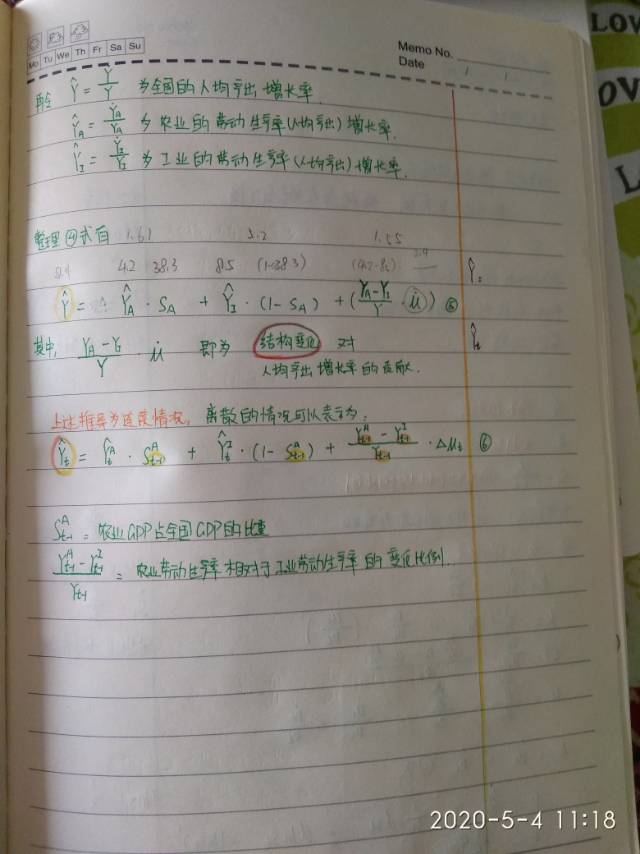 Mo Tu We Th Fr Sa Su
Memo No.
Date / /
再令 Ŷ = Ẏ/Y 为全国的人均产出增长率.
Ŷ_A = Ẏ_A/Y_A 为农业的劳动生产率(人均产出)增长率.
Ŷ_I = Ẏ_I/Y_I 为工业的劳动生产率(人均产出)增长率.
整理④式有 1.61 1.55
4.2 38.3 8.5 (1-38.3)
Ŷ = Ŷ_A · S_A + Ŷ_I · (1-S_A) + (Y_A-Y_I)/Y · μ̇ ) ⑤
Ŷ =
其中, (Y_A-Y_I)/Y · μ̇ 即为 结构变化 对
Ŷ_t
人均产出增长率的贡献.
上述推导为连续情况, 离散的情况可以表示为:
Ŷ_t = Ŷ_t^A · S_{t-1}^A + Ŷ_t^I · (1-S_{t-1}^A) + (Y_{t-1}^A - Y_{t-1}^I)/Y_{t-1} · Δμ_t ⑥
S_{t-1}^A = 农业GDP占全国GDP的比重
(Y_{t-1}^A - Y_{t-1}^I)/Y_{t-1} = 农业劳动生产率相对于工业劳动生产率的变化比例.
LOV
OV
L
2020-5-4 11:18